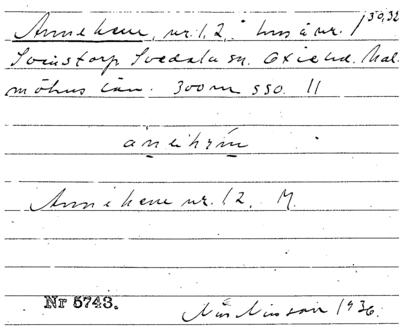 Annehem, nr. 1, 2. hus å nr. 1 30,32
Svenstorp Svedala sn. Oxie hd. Mal-
möhus län. 300 m SSO. 11
Annehem nr. 12. M.
Nr 5743.
Nils Nilsson 1936.